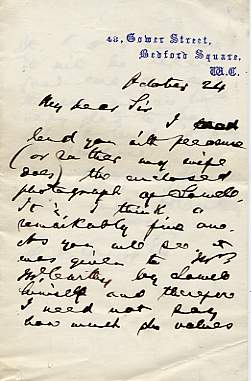 43, Gower Street,
Bedford Square,
W.C.
October 24
My dear Sir
I
lend you with pleasure
(or rather my wife
does) the enclosed
photograph of Lowell.
It is I think a
remarkably fine one.
As you will see it
was given to Mrs
McCarthy by Lowell
himself and therefore
I need not say
how much she values